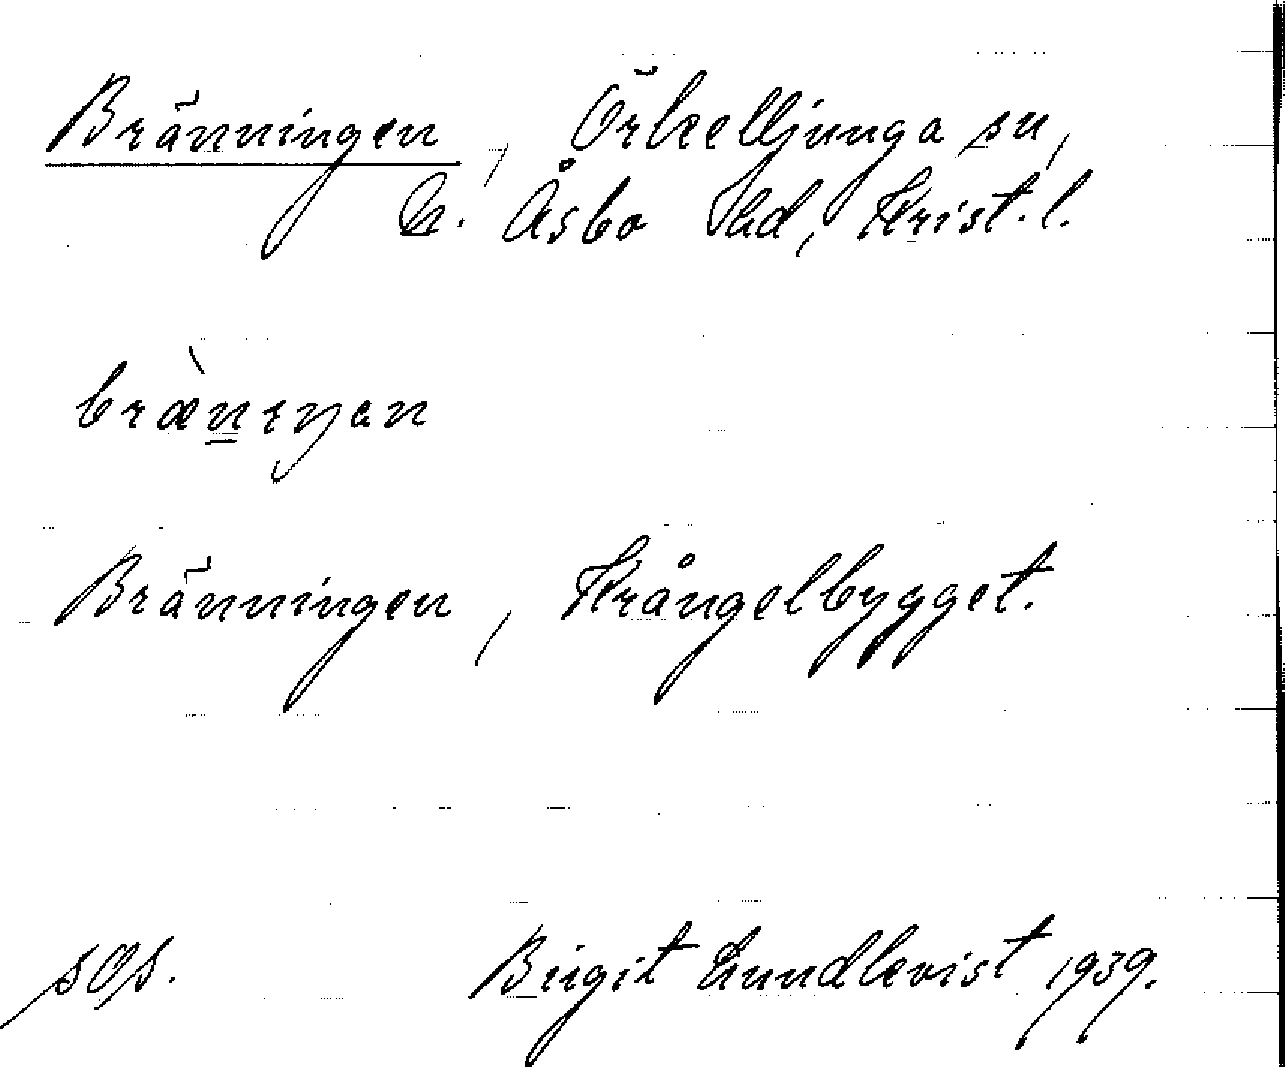 Bränningen, Örkelljunga sn,
N. Åsbo hd, Krist. l.
bræ̀n̲ɪŋan
Bränningen, Krångelbygget.
sOs. Birgit Lundkvist 1939.